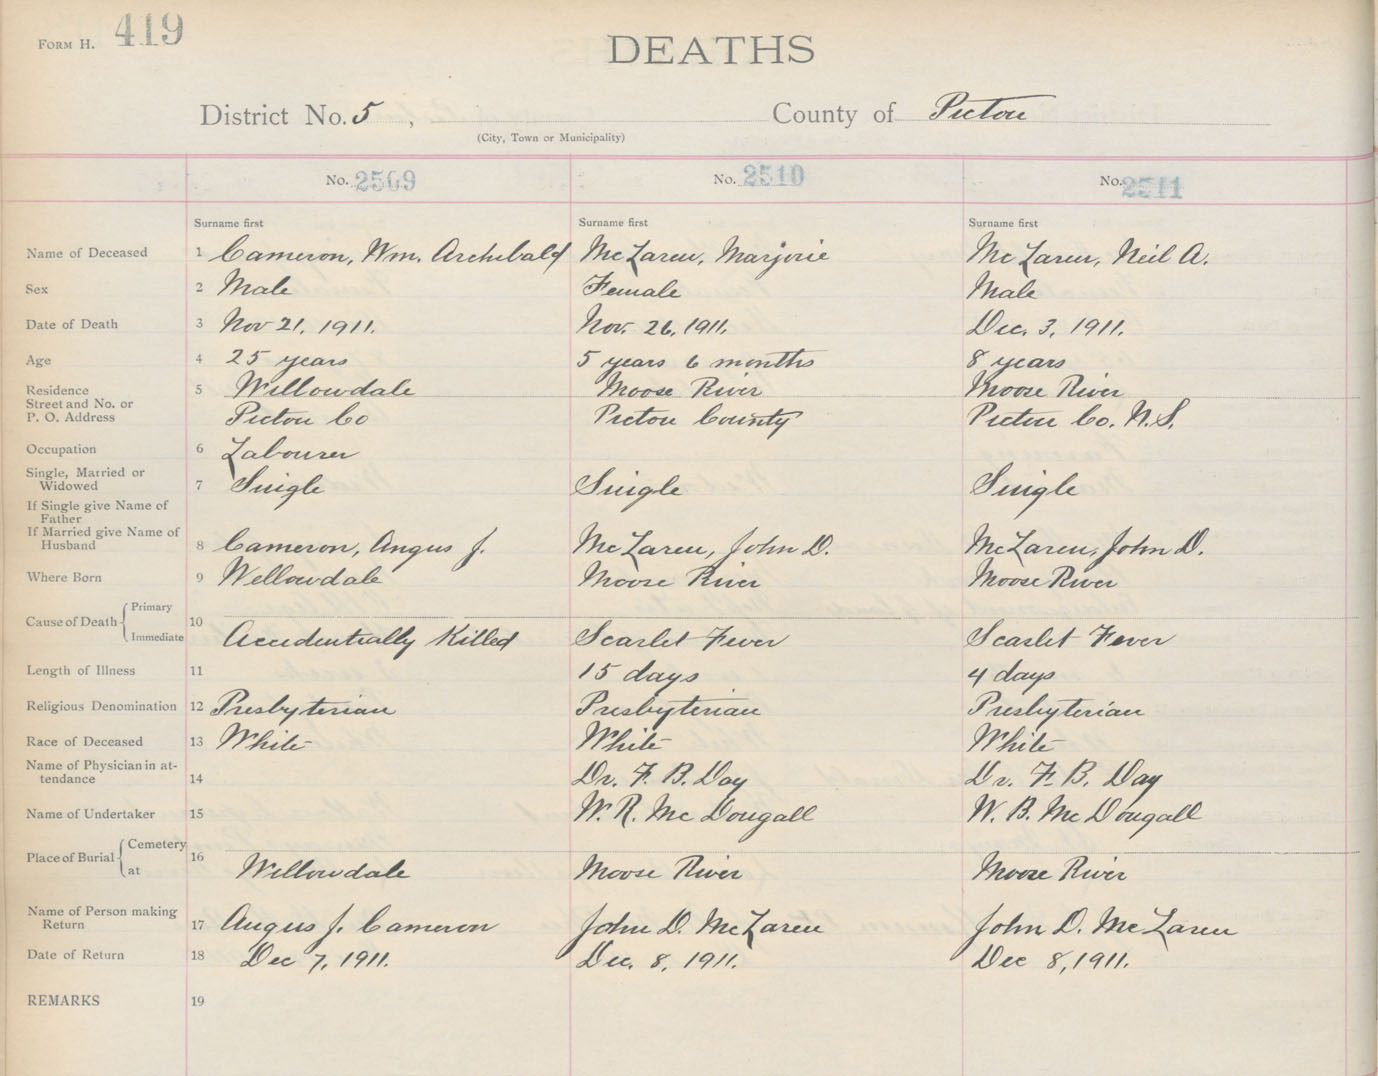 FORM H. 419
DEATHS
District No. 5 , County of Pictou
(City, Town or Municipality)
No. 2509 No. 2510 No. 2511
Surname first Surname first Surname first
Name of Deceased 1 Cameron, Wm. Archibald McLaren, Marjorie McLaren, Neil A.
Sex 2 Male Female Male
Date of Death 3 Nov 21, 1911. Nov. 26, 1911. Dec. 3, 1911.
Age 4 25 years 5 years 6 months 8 years
Residence 5 Willowdale Moose River Moose River
Street and No. or
P. O. Address Pictou Co Pictou County Pictou Co. N.S.
Occupation 6 Labourer
Single, Married or
Widowed 7 Single Single Single
If Single give Name of
Father
If Married give Name of
Husband 8 Cameron, Angus J. McLaren, John D. McLaren, John D.
Where Born 9 Wellowdale Moose River Moose River
Cause of Death { Primary 10
Immediate Accidentially Killed Scarlet Fever Scarlet Fever
Length of Illness 11 15 days 4 days
Religious Denomination 12 Presbyterian Presbyterian Presbyterian
Race of Deceased 13 White White White
Name of Physician in at-
tendance 14 Dr. F. B. Day Dr. F. B. Day
Name of Undertaker 15 W. R. McDougall W. B. McDougall
Place of Burial { Cemetery 16
at Willowdale Moose River Moose River
Name of Person making
Return 17 Angus J. Cameron John D. McLaren John D. McLaren
Date of Return 18 Dec 7, 1911. Dec. 8, 1911. Dec 8, 1911.
REMARKS 19